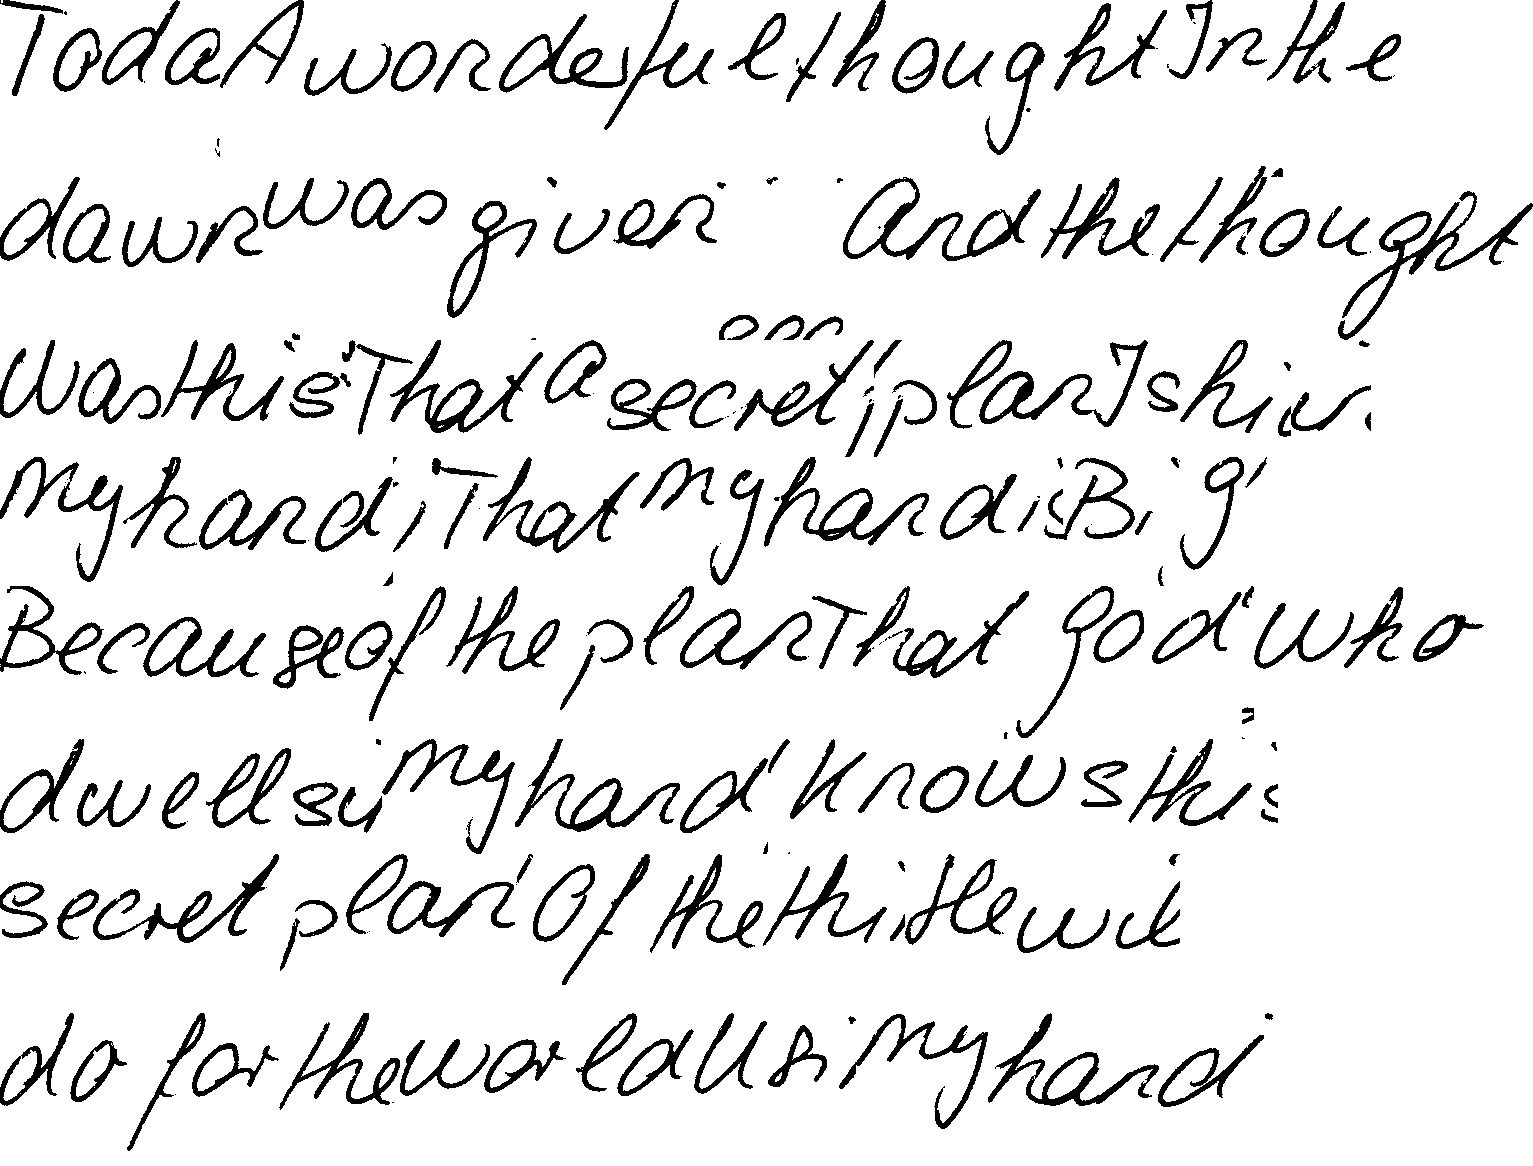 Toda A wonderful thought In the
dawn was given And the thought
Was this That a secret plan Is hi
My hand That My hand is Big
Because of the plan That god who
dwells i My hand knows this
secret plan Of the thi He wil
do for the world Usi My hand